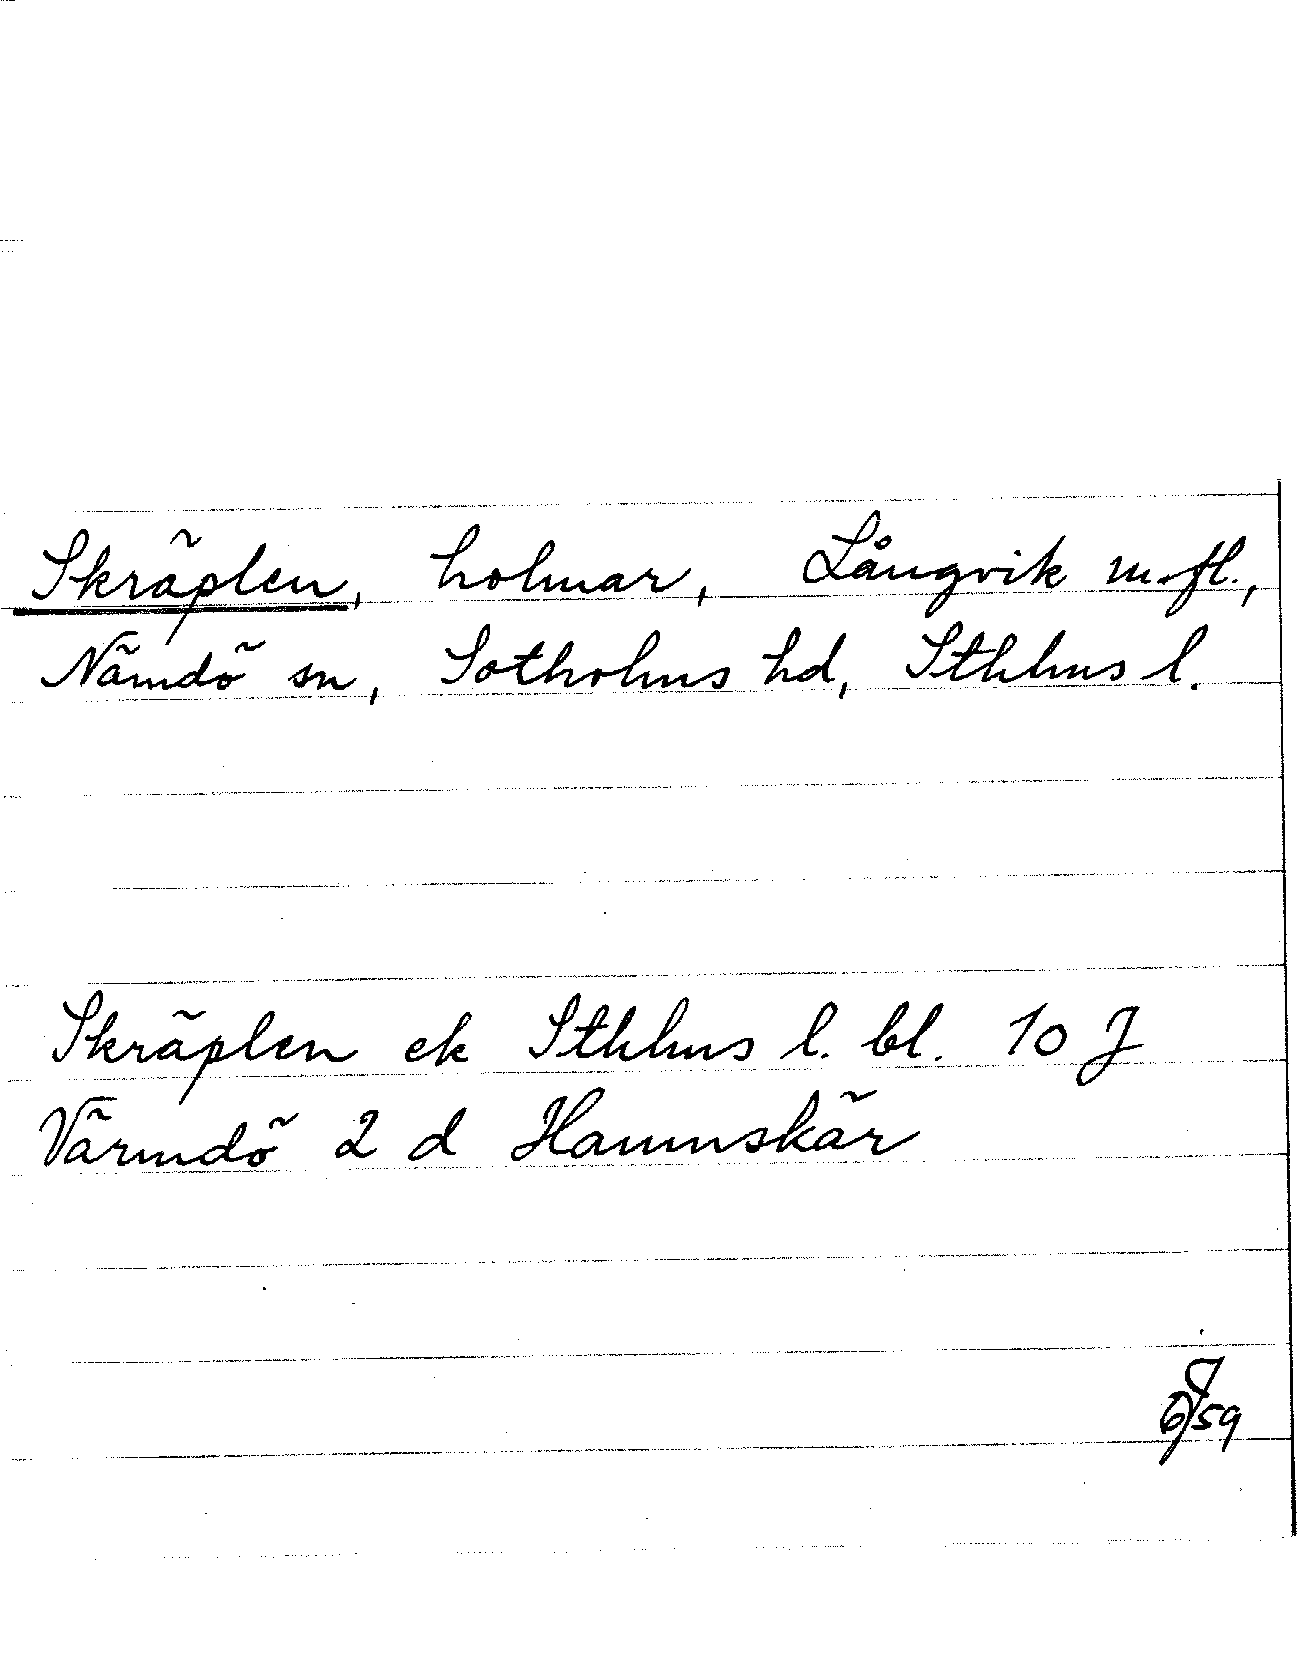 Skräplen, holmar, Långvik m.fl.,
Nämdö sn, Sotholms hd, Sthlms l.
Skräplen ek Sthlms l. bl. 10 J
Värmdö 2 d Hamnskär